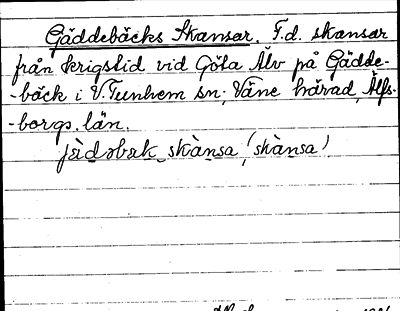 Gäddebäcks Skansar. F.d. skansar
från krigstid vid Göta Älv på Gädde-
-bäck i V. Tunhem sn; Väne härad, Älfs-
-borgs. län.
jädəbæk skànsa (skànsa)